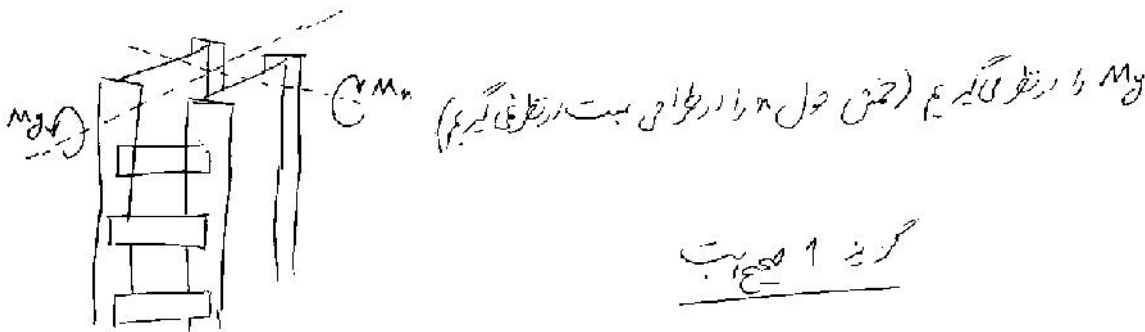 My را در نظر می گیریم (خمش حول x را در طراحی بست در نظر نمی گیریم)
My
Mx
گزینه 1 صحیح است